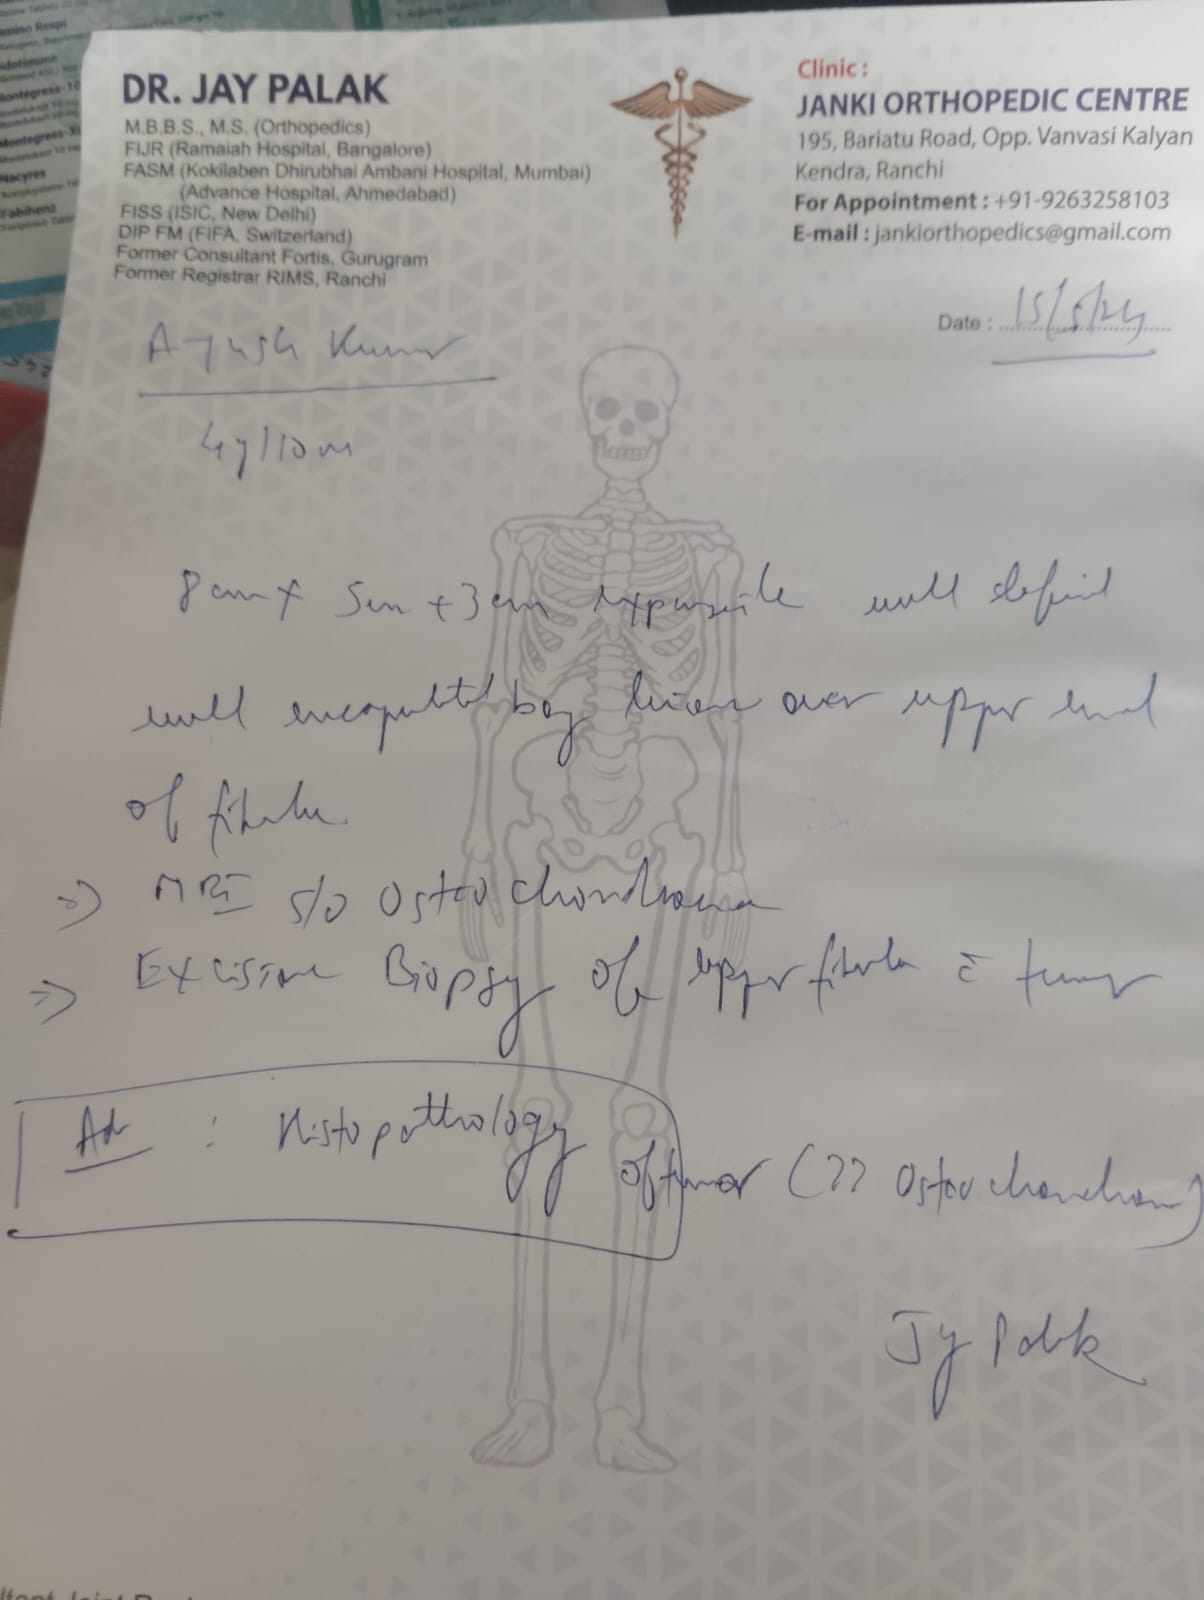 DR. JAY PALAK
M.B.B.S., M.S. (Orthopedics)
FIJR (Ramaiah Hospital, Bangalore)
FASM (Kokilaben Dhirubhai Ambani Hospital, Mumbai)
(Advance Hospital, Ahmedabad)
FISS (ISIC, New Delhi)
DIP FM (FIFA, Switzerland)
Former Consultant Fortis, Gurugram
Former Registrar RIMS, Ranchi
Clinic :
JANKI ORTHOPEDIC CENTRE
195, Bariatu Road, Opp. Vanvasi Kalyan
Kendra, Ranchi
For Appointment : +91-9263258103
E-mail : jankiorthopedics@gmail.com
Date : 15/5/24
Ayush Kumar
4y/10m
8cm x 5cm + 3cm expansile well defined
well encapsulated bony lesion over upper end
of fibula
=> MRI s/o Osteochondroma
=> Excision Biopsy of upper fibula c̄ tumor
Adv : Histopathology of tumor (?? Osteochondroma)
Jay Palak